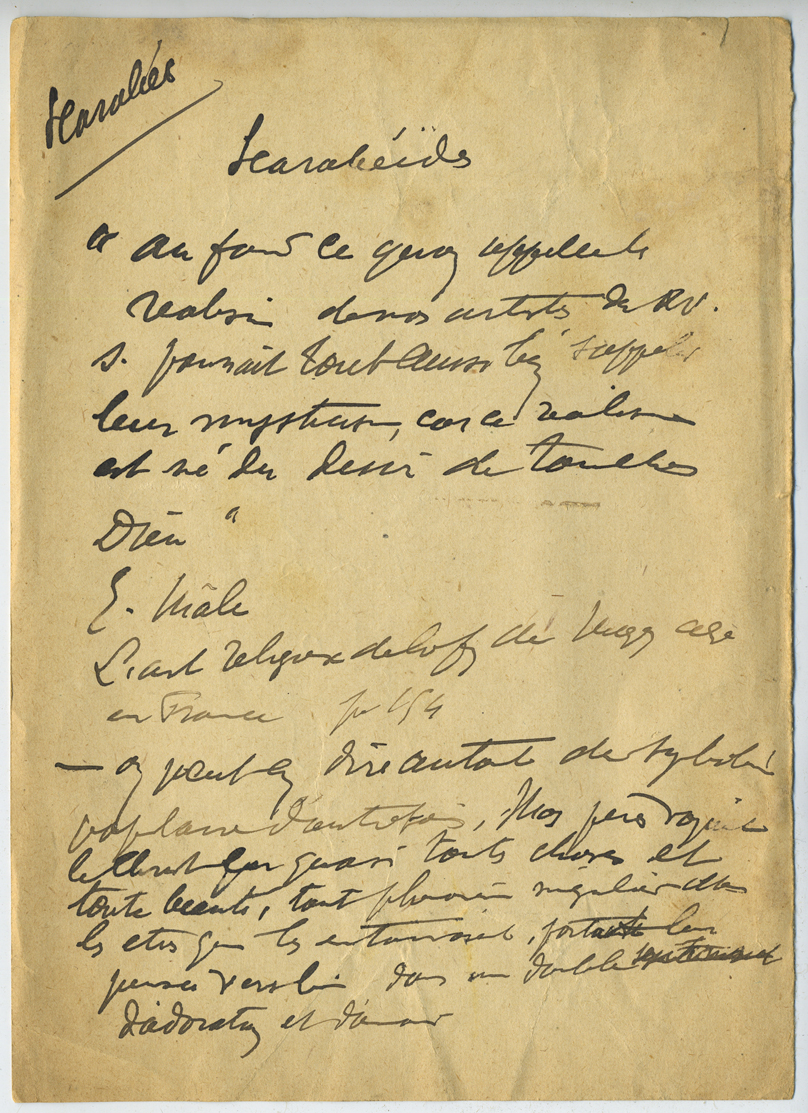 Scarabées
Scarabéïdes
" Au fond ce qu'on appelle le
réalisme de nos artistes du XV.
s. pourrait tout aussi bien s'appeler
leur mysticisme, car ce réalisme
est né du désir de toucher
Dieu "
E. Mâle
L'art religieux de la fin du moyen age
en France p 154
— on peut en dire autant du symbolisme
populaire d'autrefois, Nos pères voyaient
le Christ en quasi toutes choses et
toute beauté, tout phénomène singulier
les êtres qui les entouraient, portait leur
pensée vers lui dans un double
d'adoration et d'amour